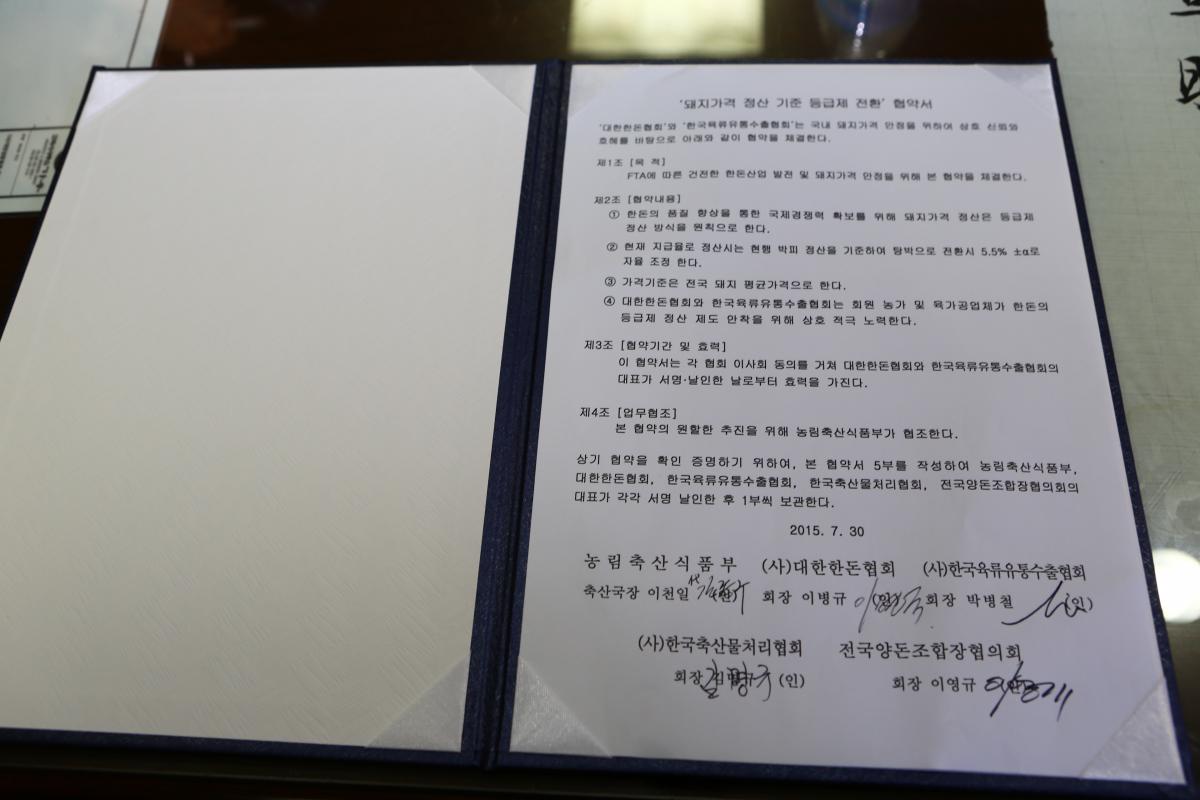 '돼지가격 정산 기준 등급제 전환' 협약서
'대한한돈협회'와 '한국육류유통수출협회'는 국내 돼지가격 안정을 위하여 상호 신뢰와
호혜를 바탕으로 아래와 같이 협약을 체결한다.
제1조 [목 적]
FTA에 따른 건전한 한돈산업 발전 및 돼지가격 안정을 위해 본 협약을 체결한다.
제2조 [협약내용]
① 한돈의 품질 향상을 통한 국제경쟁력 확보를 위해 돼지가격 정산은 등급제
정산 방식을 원칙으로 한다.
② 현재 지급율로 정산시는 현행 박피 정산을 기준하여 탕박으로 전환시 5.5% ±α로
자율 조정 한다.
③ 가격기준은 전국 돼지 평균가격으로 한다.
④ 대한한돈협회와 한국육류유통수출협회는 회원 농가 및 육가공업체가 한돈의
등급제 정산 제도 안착을 위해 상호 적극 노력한다.
제3조 [협약기간 및 효력]
이 협약서는 각 협회 이사회 동의를 거쳐 대한한돈협회와 한국육류유통수출협회의
대표가 서명·날인한 날로부터 효력을 가진다.
제4조 [업무협조]
본 협약의 원할한 추진을 위해 농림축산식품부가 협조한다.
상기 협약을 확인 증명하기 위하여, 본 협약서 5부를 작성하여 농림축산식품부,
대한한돈협회, 한국육류유통수출협회, 한국축산물처리협회, 전국양돈조합장협의회의
대표가 각각 서명 날인한 후 1부씩 보관한다.
2015. 7. 30
농림축산식품부 (사)대한한돈협회 (사)한국육류유통수출협회
축산국장 이천일 회장 이병규 회장 박병철 (인)
(사)한국축산물처리협회 전국양돈조합장협의회
회장 김명규 (인) 회장 이영규